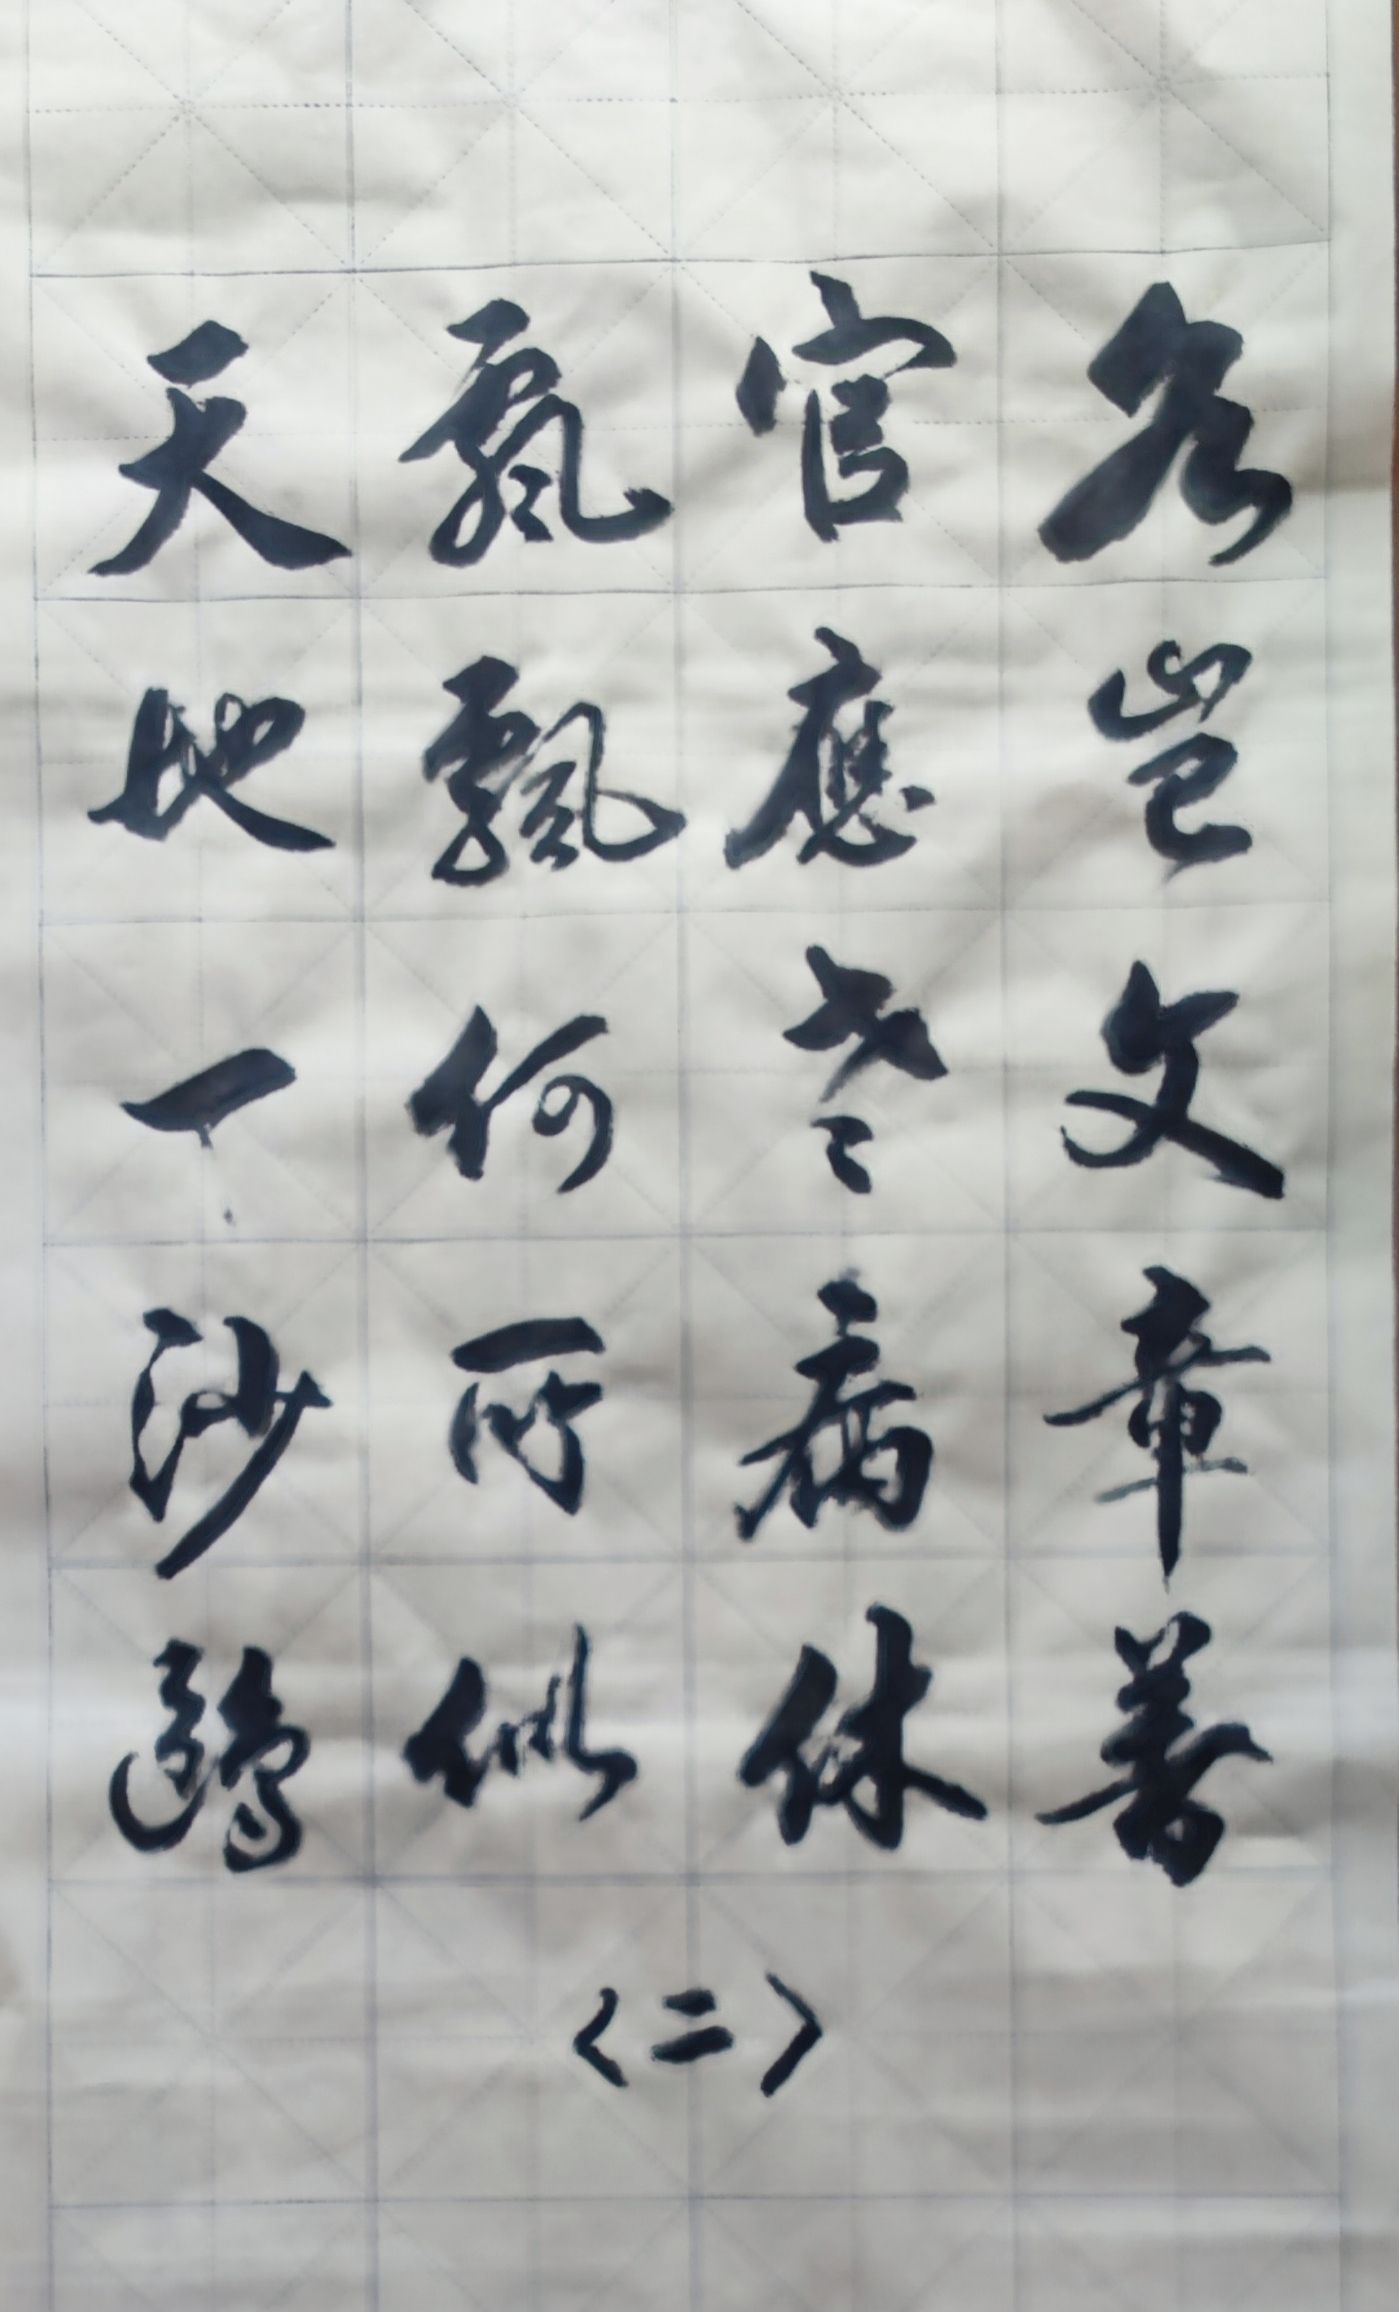 名岂文章著
官應老病休
飘飄何所似
天地一沙鷗
〈二〉